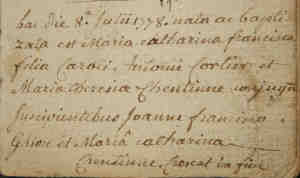 hac die 8ª Julii 1778. nata ac bapti
zata est Maria catharina francisca
filia Caroli Antonii Corlier et
Maria theresia Chentinne conjugu
Suscipientibus Joanne francisco
Ghion et Mariâ catharina
Chentinne